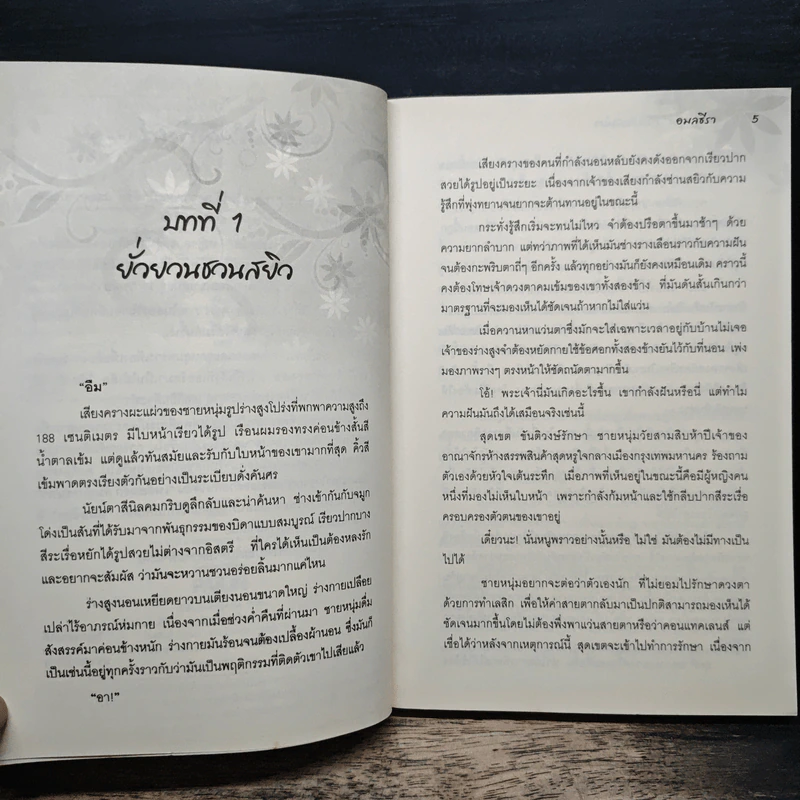 บทที่ 1
ยั่วยวนชวนสยิว
“อืม”
เสียงครางผะแผ่วของชายหนุ่มรูปร่างสูงโปร่งที่พกพาความสูงถึง
188 เซนติเมตร มีใบหน้าเรียวได้รูป เรือนผมรองทรงค่อนข้างสั้นสี
น้ำตาลเข้ม แต่ดูแล้วทันสมัยและรับกับใบหน้าของเขามากที่สุด คิ้วสี
เข้มพาดตรงเรียงตัวกันอย่างเป็นระเบียบดั่งคันศร
นัยน์ตาสีนิลคมกริบดูลึกลับและน่าค้นหา ช่างเข้ากันกับจมูก
โด่งเป็นสันที่ได้รับมาจากพันธุกรรมของบิดาแบบสมบูรณ์ เรียวปากบาง
สีระเรื่อหยักได้รูปสวยไม่ต่างจากอิสตรี ที่ใครได้เห็นเป็นต้องหลงรัก
และอยากจะสัมผัส ว่ามันจะหวานชวนอร่อยลิ้นมากแค่ไหน
ร่างสูงนอนเหยียดยาวบนเตียงนอนขนาดใหญ่ ร่างกายเปลือย
เปล่าไร้อาภรณ์ห่มกาย เนื่องจากเมื่อช่วงค่ำคืนที่ผ่านมา ชายหนุ่มดื่ม
สังสรรค์มาค่อนข้างหนัก ร่างกายมันร้อนจนต้องเปลื้องผ้านอน ซึ่งมันก็
เป็นเช่นนี้อยู่ทุกครั้งราวกับว่ามันเป็นพฤติกรรมที่ติดตัวเขาไปเสียแล้ว
“อา!”
อมลธีรา 5
เสียงครางของคนที่กำลังนอนหลับยังคงดังออกจากเรียวปาก
สวยได้รูปอยู่เป็นระยะ เนื่องจากเจ้าของเสียงกำลังซ่านสยิวกับความ
รู้สึกที่พุ่งทยานจนยากจะต้านทานอยู่ในขณะนี้
กระทั่งรู้สึกเริ่มจะทนไม่ไหว จำต้องปรือตาขึ้นมาช้าๆ ด้วย
ความยากลำบาก แต่ทว่าภาพที่ได้เห็นมันช่างรางเลือนราวกับความฝัน
จนต้องกะพริบตาถี่ๆ อีกครั้ง แล้วทุกอย่างมันก็ยังคงเหมือนเดิม คราวนี้
คงต้องโทษเจ้าดวงตาคมเข้มของเขาทั้งสองข้าง ที่มันดันสั้นเกินกว่า
มาตรฐานที่จะมองเห็นได้ชัดเจนถ้าหากไม่ใส่แว่น
เมื่อควานหาแว่นตาซึ่งมักจะใส่เฉพาะเวลาอยู่กับบ้านไม่เจอ
เจ้าของร่างสูงจำต้องหยัดกายใช้ข้อศอกทั้งสองข้างยันไว้กับที่นอน เพ่ง
มองภาพรางๆ ตรงหน้าให้ชัดถนัดตามากขึ้น
โอ้! พระเจ้านี่มันเกิดอะไรขึ้น เขากำลังฝันหรือนี่ แต่ทำไม
ความฝันมันถึงได้เสมือนจริงเช่นนี้
สุดเขต ขันติวงษ์รักษา ชายหนุ่มวัยสามสิบห้าปีเจ้าของ
อาณาจักรห้างสรรพสินค้าสุดหรูใจกลางเมืองกรุงเทพมหานคร ร้องถาม
ตัวเองด้วยหัวใจเต้นระทึก เมื่อภาพที่เห็นอยู่ในขณะนี้คือมีผู้หญิงคน
หนึ่งที่มองไม่เห็นใบหน้า เพราะกำลังก้มหน้าและใช้กลีบปากสีระเรื่อ
ครอบครองตัวตนของเขาอยู่
เดี๋ยวนะ! นั่นหนูพราวอย่างนั้นหรือ ไม่ใช่ มันต้องไม่มีทางเป็น
ไปได้
ชายหนุ่มอยากจะต่อว่าตัวเองนัก ที่ไม่ยอมไปรักษาดวงตา
ด้วยการทำเลสิก เพื่อให้ค่าสายตากลับมาเป็นปกติสามารถมองเห็นได้
ชัดเจนมากขึ้นโดยไม่ต้องพึ่งพาแว่นสายตาหรือว่าคอนแทคเลนส์ แต่
เชื่อได้ว่าหลังจากเหตุการณ์นี้ สุดเขตจะเข้าไปทำการรักษา เนื่องจาก